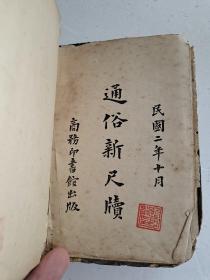 民國二年十月
通俗新尺牘
商務印書館出版